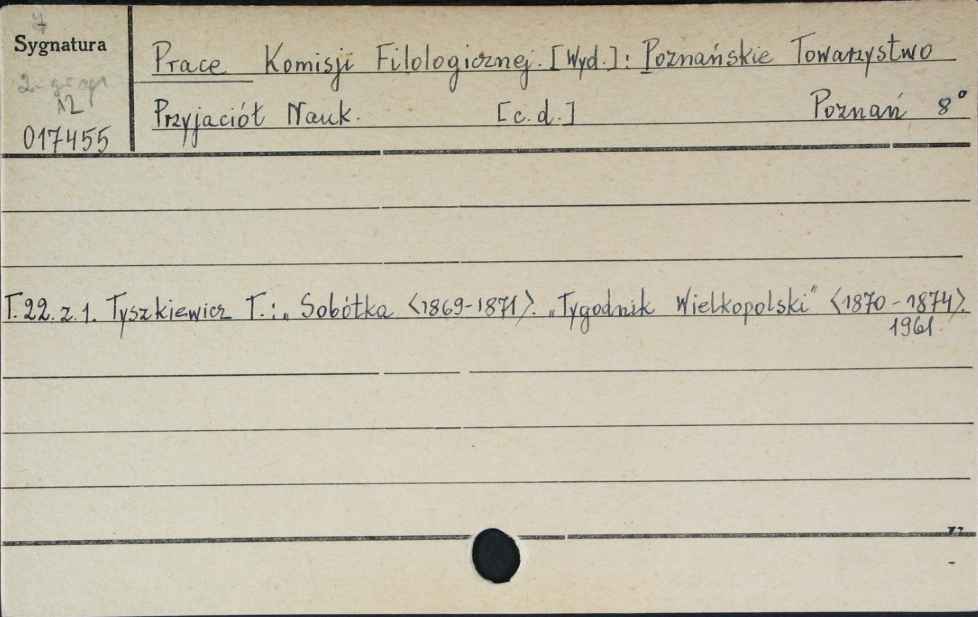 Sygnatura
12
017455
Prace Komisji Filologicznej. [Wyd.]: Poznańskie Towarzystwo
Przyjaciół Nauk. [c.d.] Poznań 8°
T.22. z.1. Tyszkiewicz T.: „Sobótka <1869-1871>. „Tygodnik Wielkopolski" <1870-1874>.
1961.